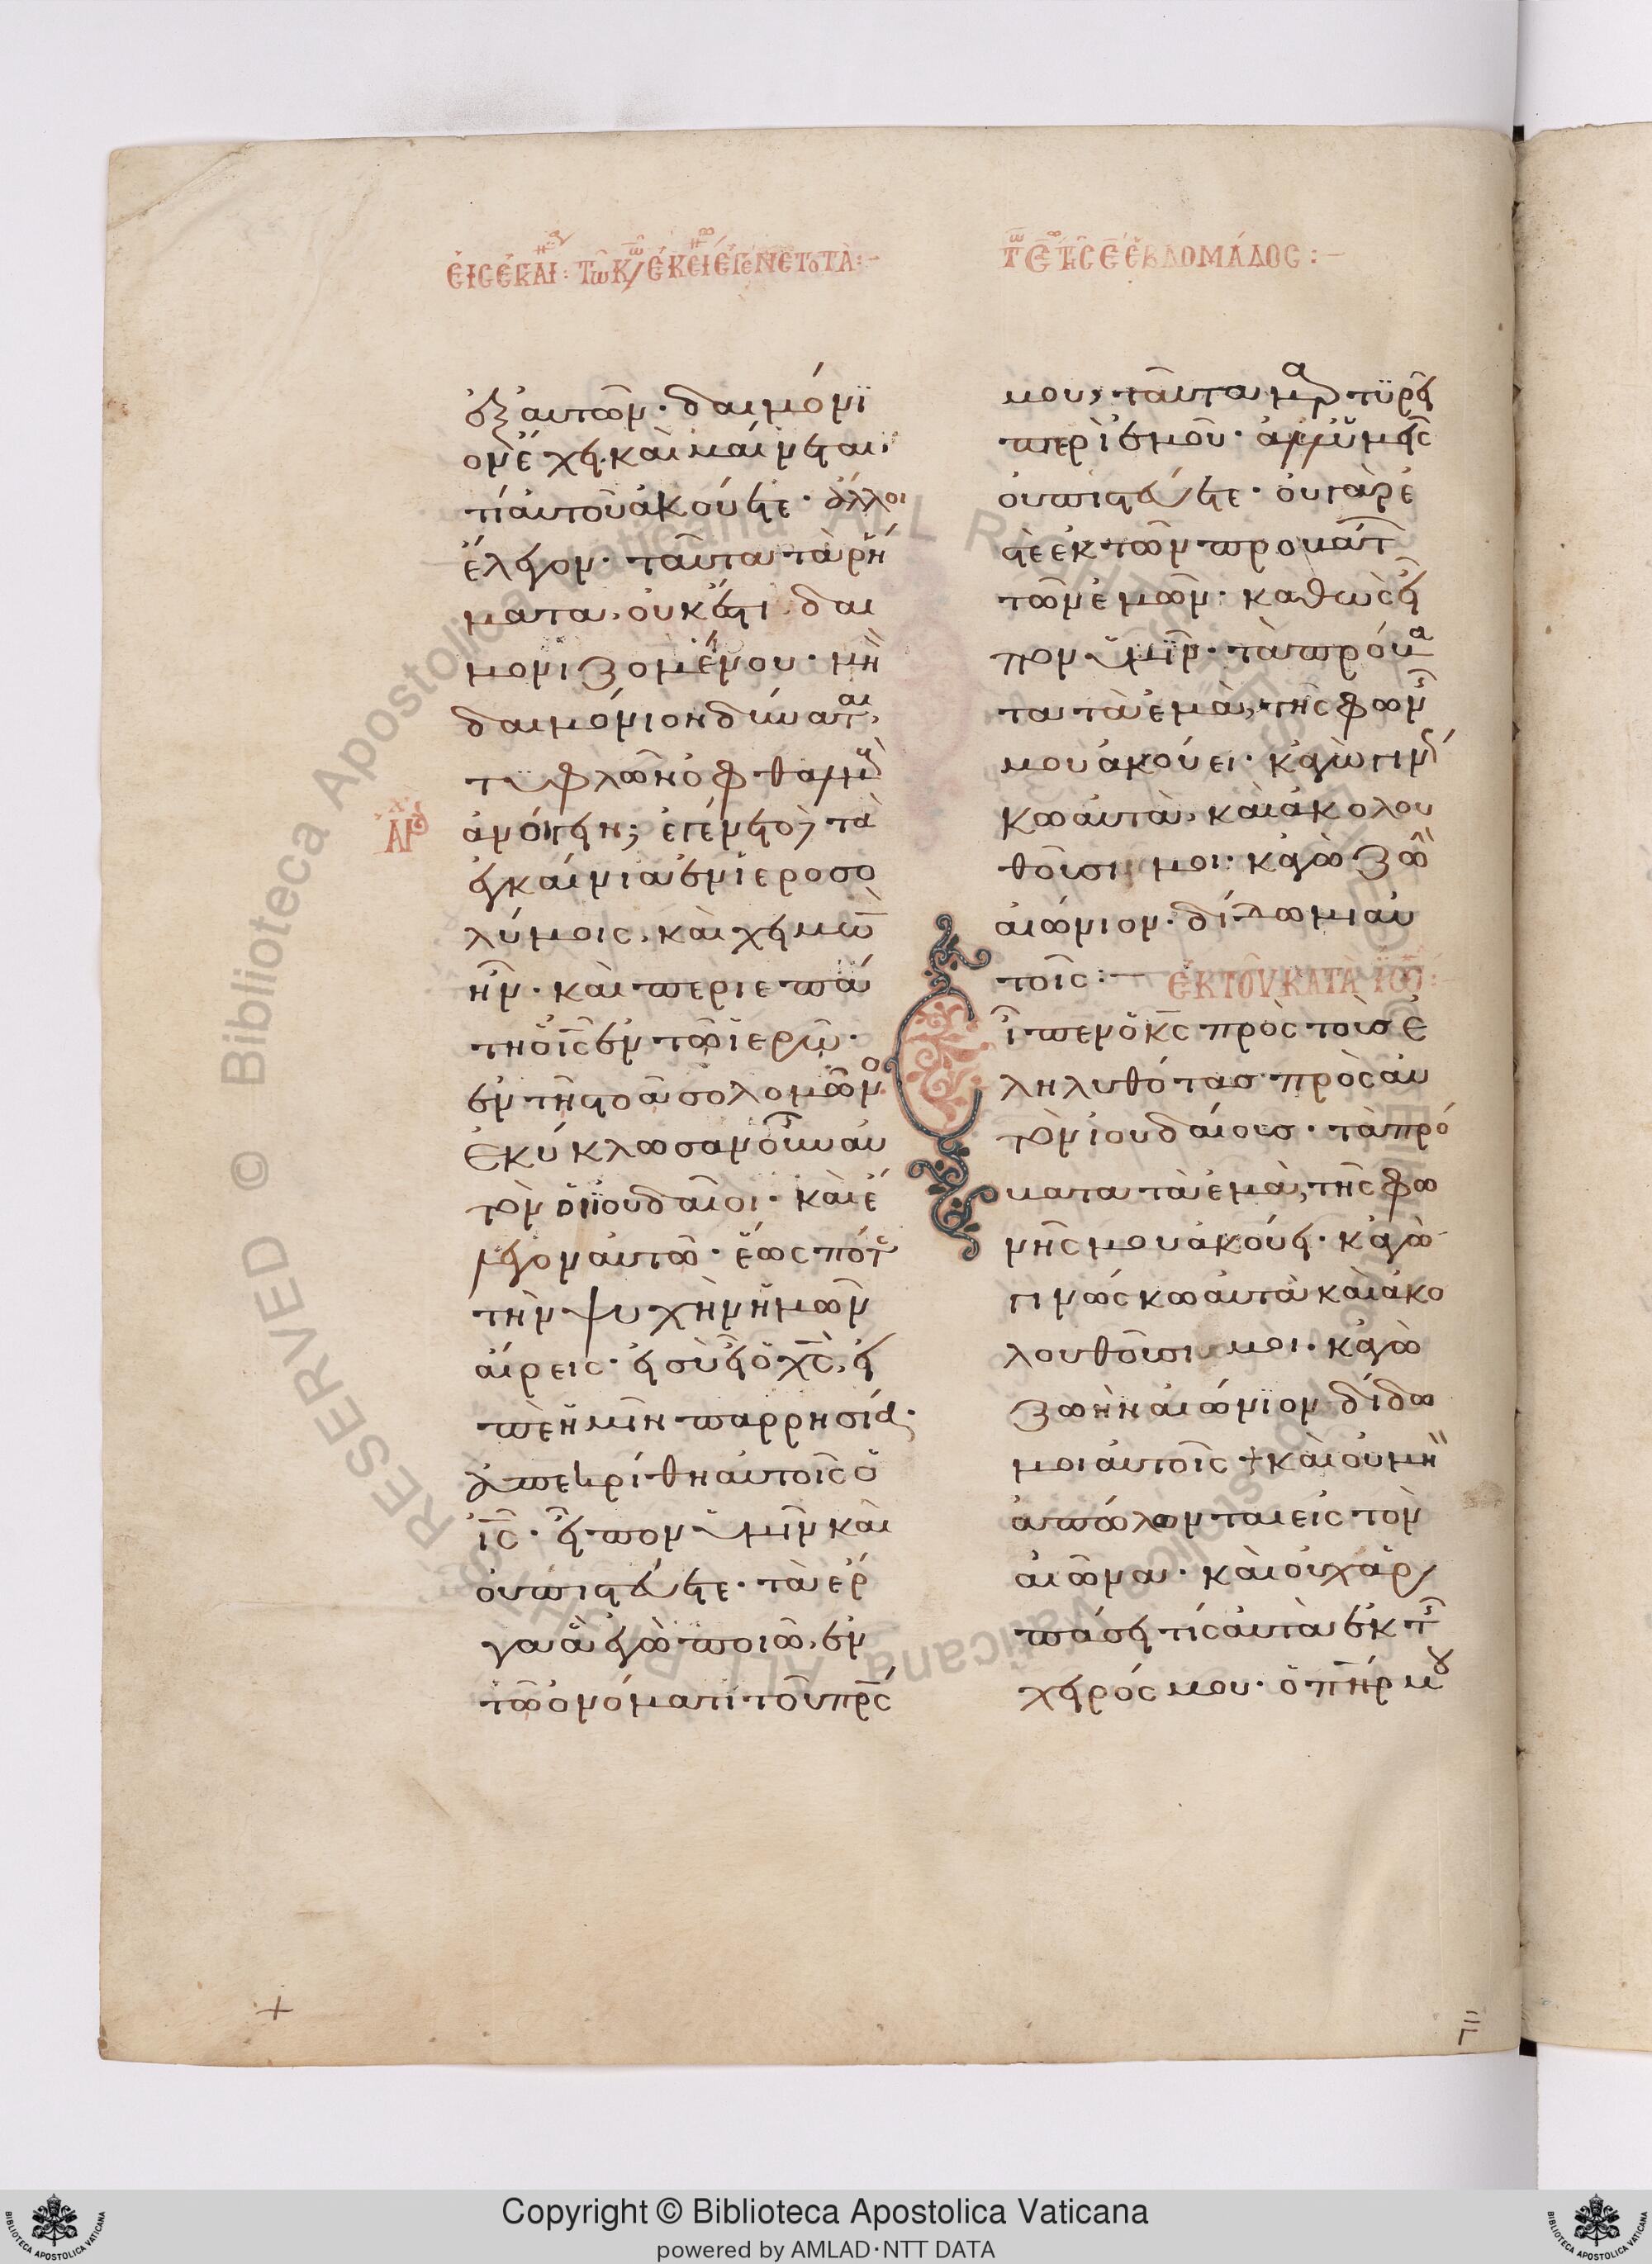 ἐξ αὐτῶν· δαιμόνϊ
ον ἔχει· καὶ μαίνεται·
τί αὐτοῦ ἀκούετε· ἄλλοι
ἔλεγον· ταῦτα τὰ ῥή
ματα, οὐκ ἔστι δαι
μονιζομένου· μὴ
δαιμόνιον δύνατ(αι),
τυφλῶν ὀφθαλμοὺ
ἀνοίγειν; ἐγένετο τὰ
ἐγκαίνια ἐν ἱεροσο
λύμοις, καὶ χειμὼ
ἦν· καὶ περιεπά
τη ὁ ις ἐν τῷ ἱερῷ·
ἐν τῇ στοᾷ σολομῶνο
Ἐκύκλωσαν οὖν αὐ
τὸν οἱ ἰουδαῖοι· καὶ ἔ
λεγον αὐτῷ· ἕως πότε
τὴν ψυχὴν ἡμῶν
αἴρεις· εἰ σὺ εἶ ὁ χς, εἰ
πὲ ἡμῖν παρρησίᾳ·
ἀπεκρίθη αὐτοῖς ὁ
ις· εἶπον ὑμῖν καὶ
οὐ πιστεύετε· τὰ ἔρ
γα ἃ ἐγὼ ποιῶ, ἐν
τῷ ὀνόματι τοῦ πρς
μου, ταῦτα μαρτϋρεῖ
περὶ ἐμοῦ· ἀλλ' ὑμεῖς
οὐ πιστεύετε· οὐ γὰρ ἐ
στὲ ἐκ τῶν προβάτ
τῶν ἐμῶν· καθὼς εἶ
πον ὑμῖν· τὰ πρόβα
τα τὰ ἐμὰ, τῆς φων
μου ἀκούει· κἀγὼ γινώ
κω αὐτὰ, καὶ ἀκολου
θοῦσι μοι· κἀγὼ ζωὴ
αἰώνιον· δίδωμι αὐ
τοῖς:—
ΕΚ ΤΟΥ ΚΑΤΑ ΙΩ:
Εἶπεν ὁ κς πρὸς τοὺς ἐ
ληλυθότας πρὸς αὐ
τὸν ἰουδαίους· τὰ πρό
βατα τὰ ἐμὰ, τῆς φω
νῆς μου ἀκούει· κἀγὼ
γινώσκω αὐτὰ καὶ ἀκο
λουθοῦσι μοι· κἀγὼ
ζωὴν αἰώνιον δίδω
μοι αὐτοῖς + καὶ οὐ μὴ
ἀπόλωνται εἰς τὸν
αἰῶνα· καὶ οὐχ ἁρ
πάσει τίς αὐτὰ ἐκ τ
χειρός μου· ὁ πηρ μου
Copyright © Biblioteca Apostolica Vaticana
powered by AMLAD·NTT DATA